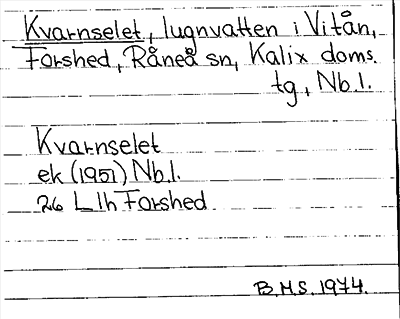 Kvarnselet, lugnvatten i Vitån,
Forshed, Råneå sn, Kalix doms.
tg, Nb.l.
Kvarnselet
ek (1951) Nb.l.
26 Llh Forshed
B.M.S. 1974.